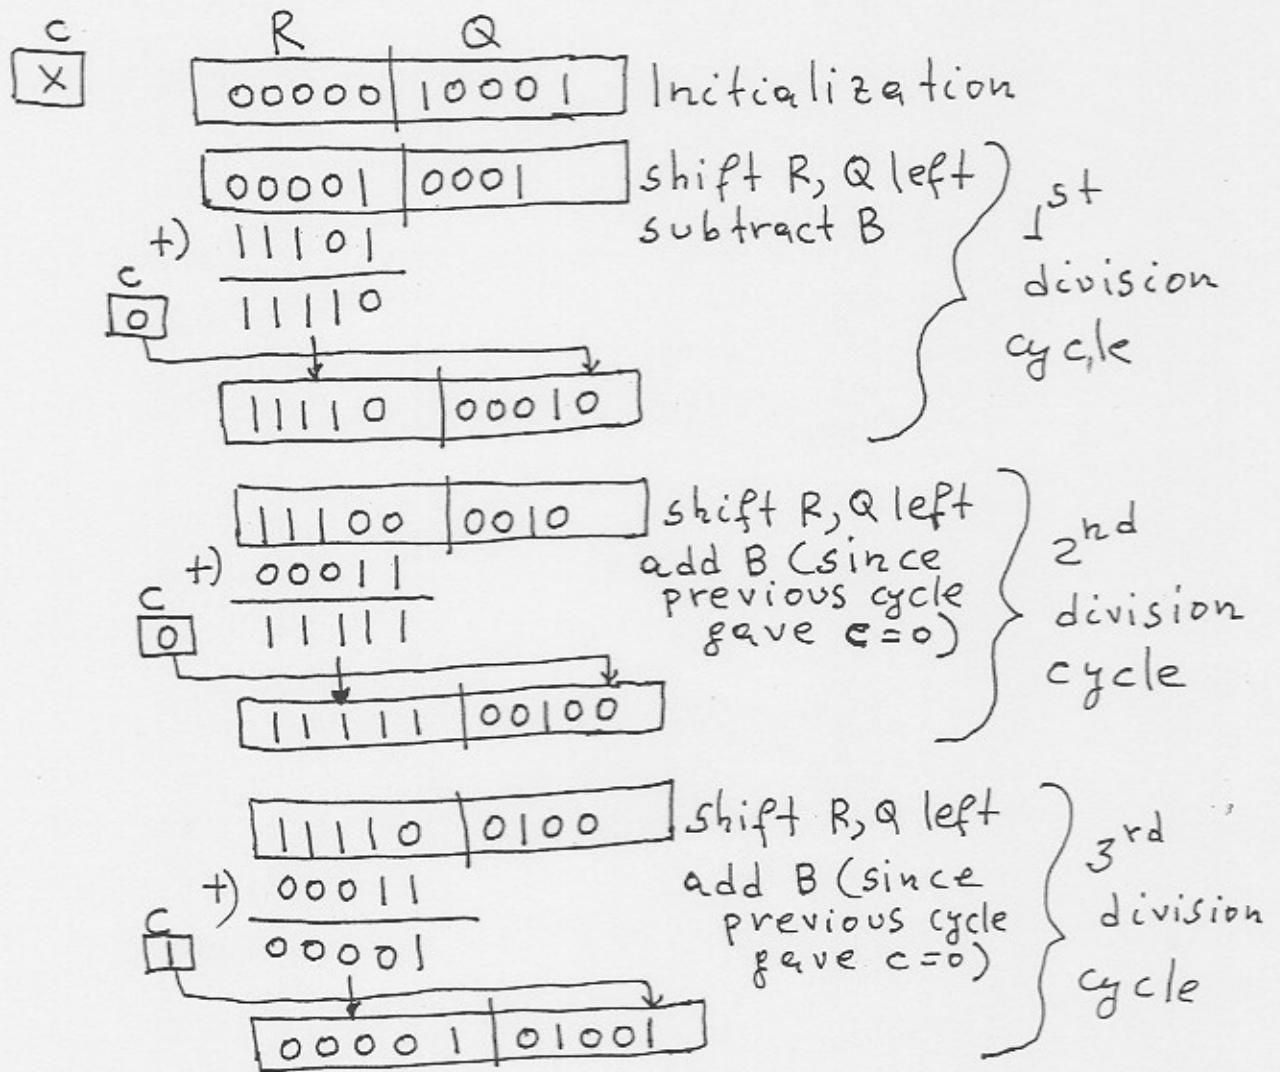 C R Q
X 00000 10001 Initialization
00001 0001 shift R, Q left
+) 11101 subtract B
C
0 11110
11110 00010
1st
division
cycle
11100 0010 shift R, Q left
+) 00011 add B (since
previous cycle
C
0 11111 gave c=0)
11111 00100
2nd
division
cycle
11110 0100 shift R, Q left
+) 00011 add B (since
previous cycle
C
1 00001 gave c=0)
00001 01001
3rd
division
cycle